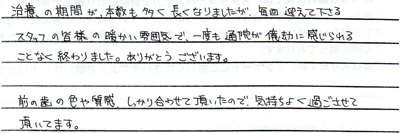 治療の期間が、本数も多く長くなりましたが、毎回迎えて下さる
スタッフの皆様の暖かい雰囲気で、一度も通院が億劫に感じられる
ことなく終わりました。ありがとうございます。
前の歯の色や質感、しっかり合わせて頂いたので、気持ちよく過ごさせて
頂いてます。